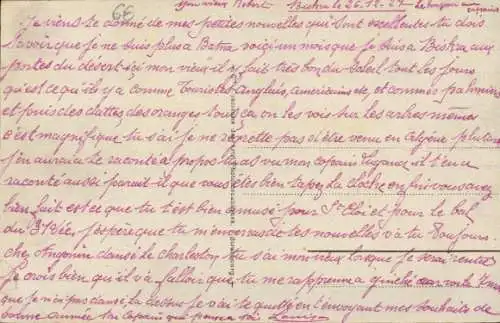 66
mon vieux Robert Biskra le 26.12.27
Je viens te donné de mes petites nouvelles qui sont excellentes tu dois
savoir que je ne suis plus a Batna voici un mois que je suis a Biskra aux
portes du désert ici mon vieux il y fait très bon du soleil tout les jours
qu'est ce qu'ils y a comme Touristes Anglais, américains etc, et comme palmiers
et puis des dattes des oranges tout ça on les vois sur les arbres mêmes
c'est magnifique tu sai je ne regrette pas d'être venu en Algérie plus tard
j'en aurai a te raconté a propos tu as vu mon copain il t'en a
raconté aussi parait-il que vous êtes bien tapez la cloche enfin vous avez
bien fait est ce que tu t'est bien amusé pour St Eloi et pour le bal
du j'espère que tu m'enverras des nouvelles va tu toujours
chez dansé le charleston tu sai mon vieux lorsque je serai rentré
je crois bien qu'il va falloir que tu me rapprenne a guinché car voila 7 mois
que je n'ai pas dansé la dessus je vais te quitté en t'envoyant mes souhaits de
bonne année ton copain qui pense a toi Louis